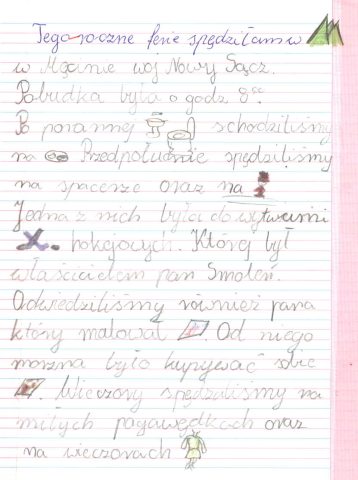 Tegoroczne ferie spędziłam w
w Męcinie woj Nowy Sącz.
Pobudka była o godz 8⁰⁰
Po porannej schodziliśmy
na Przedpołudnie spędziliśmy
na spacerze oraz na
Jedna z nich była do wytwórni
hokejowych. Której był
właścicielem pan Smoleń.
Odwiedziliśmy również pana
który malował Od niego
można było kupywać sobie
Wieczory spędzaliśmy na
miłych pogawędkach oraz
na wieczorach